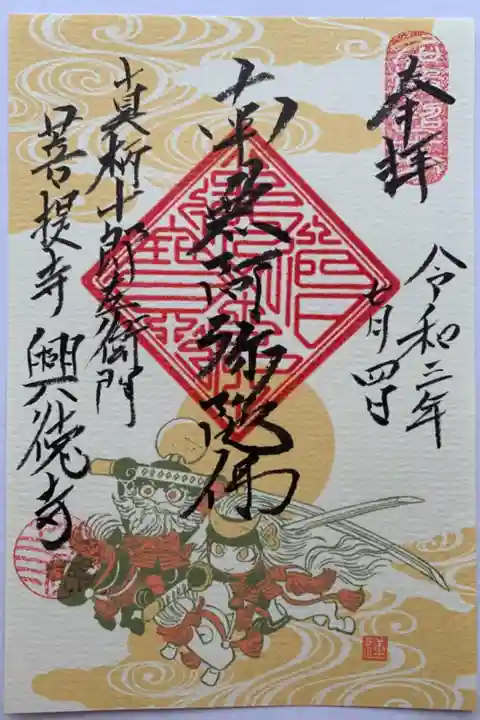 奉拝
令和二年
七月四日
南無阿弥陀佛
真柄十郎左衛門
菩提寺 興徳寺